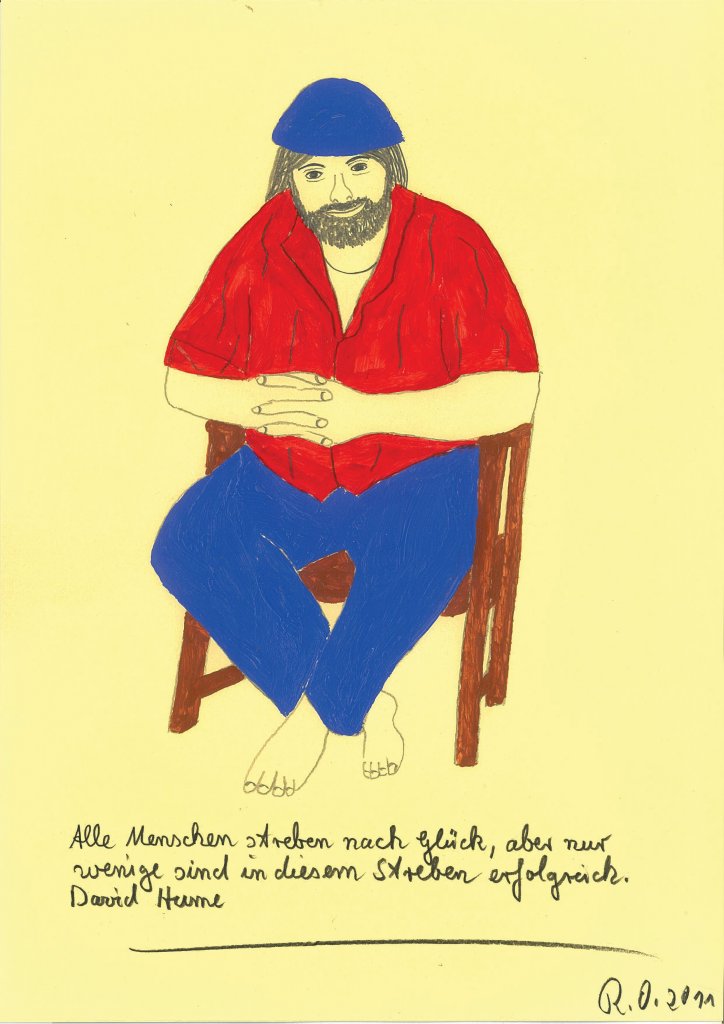 Alle Menschen streben nach Glück, aber nur
wenige sind in diesem Streben erfolgreich.
David Hume
R.O. 2011